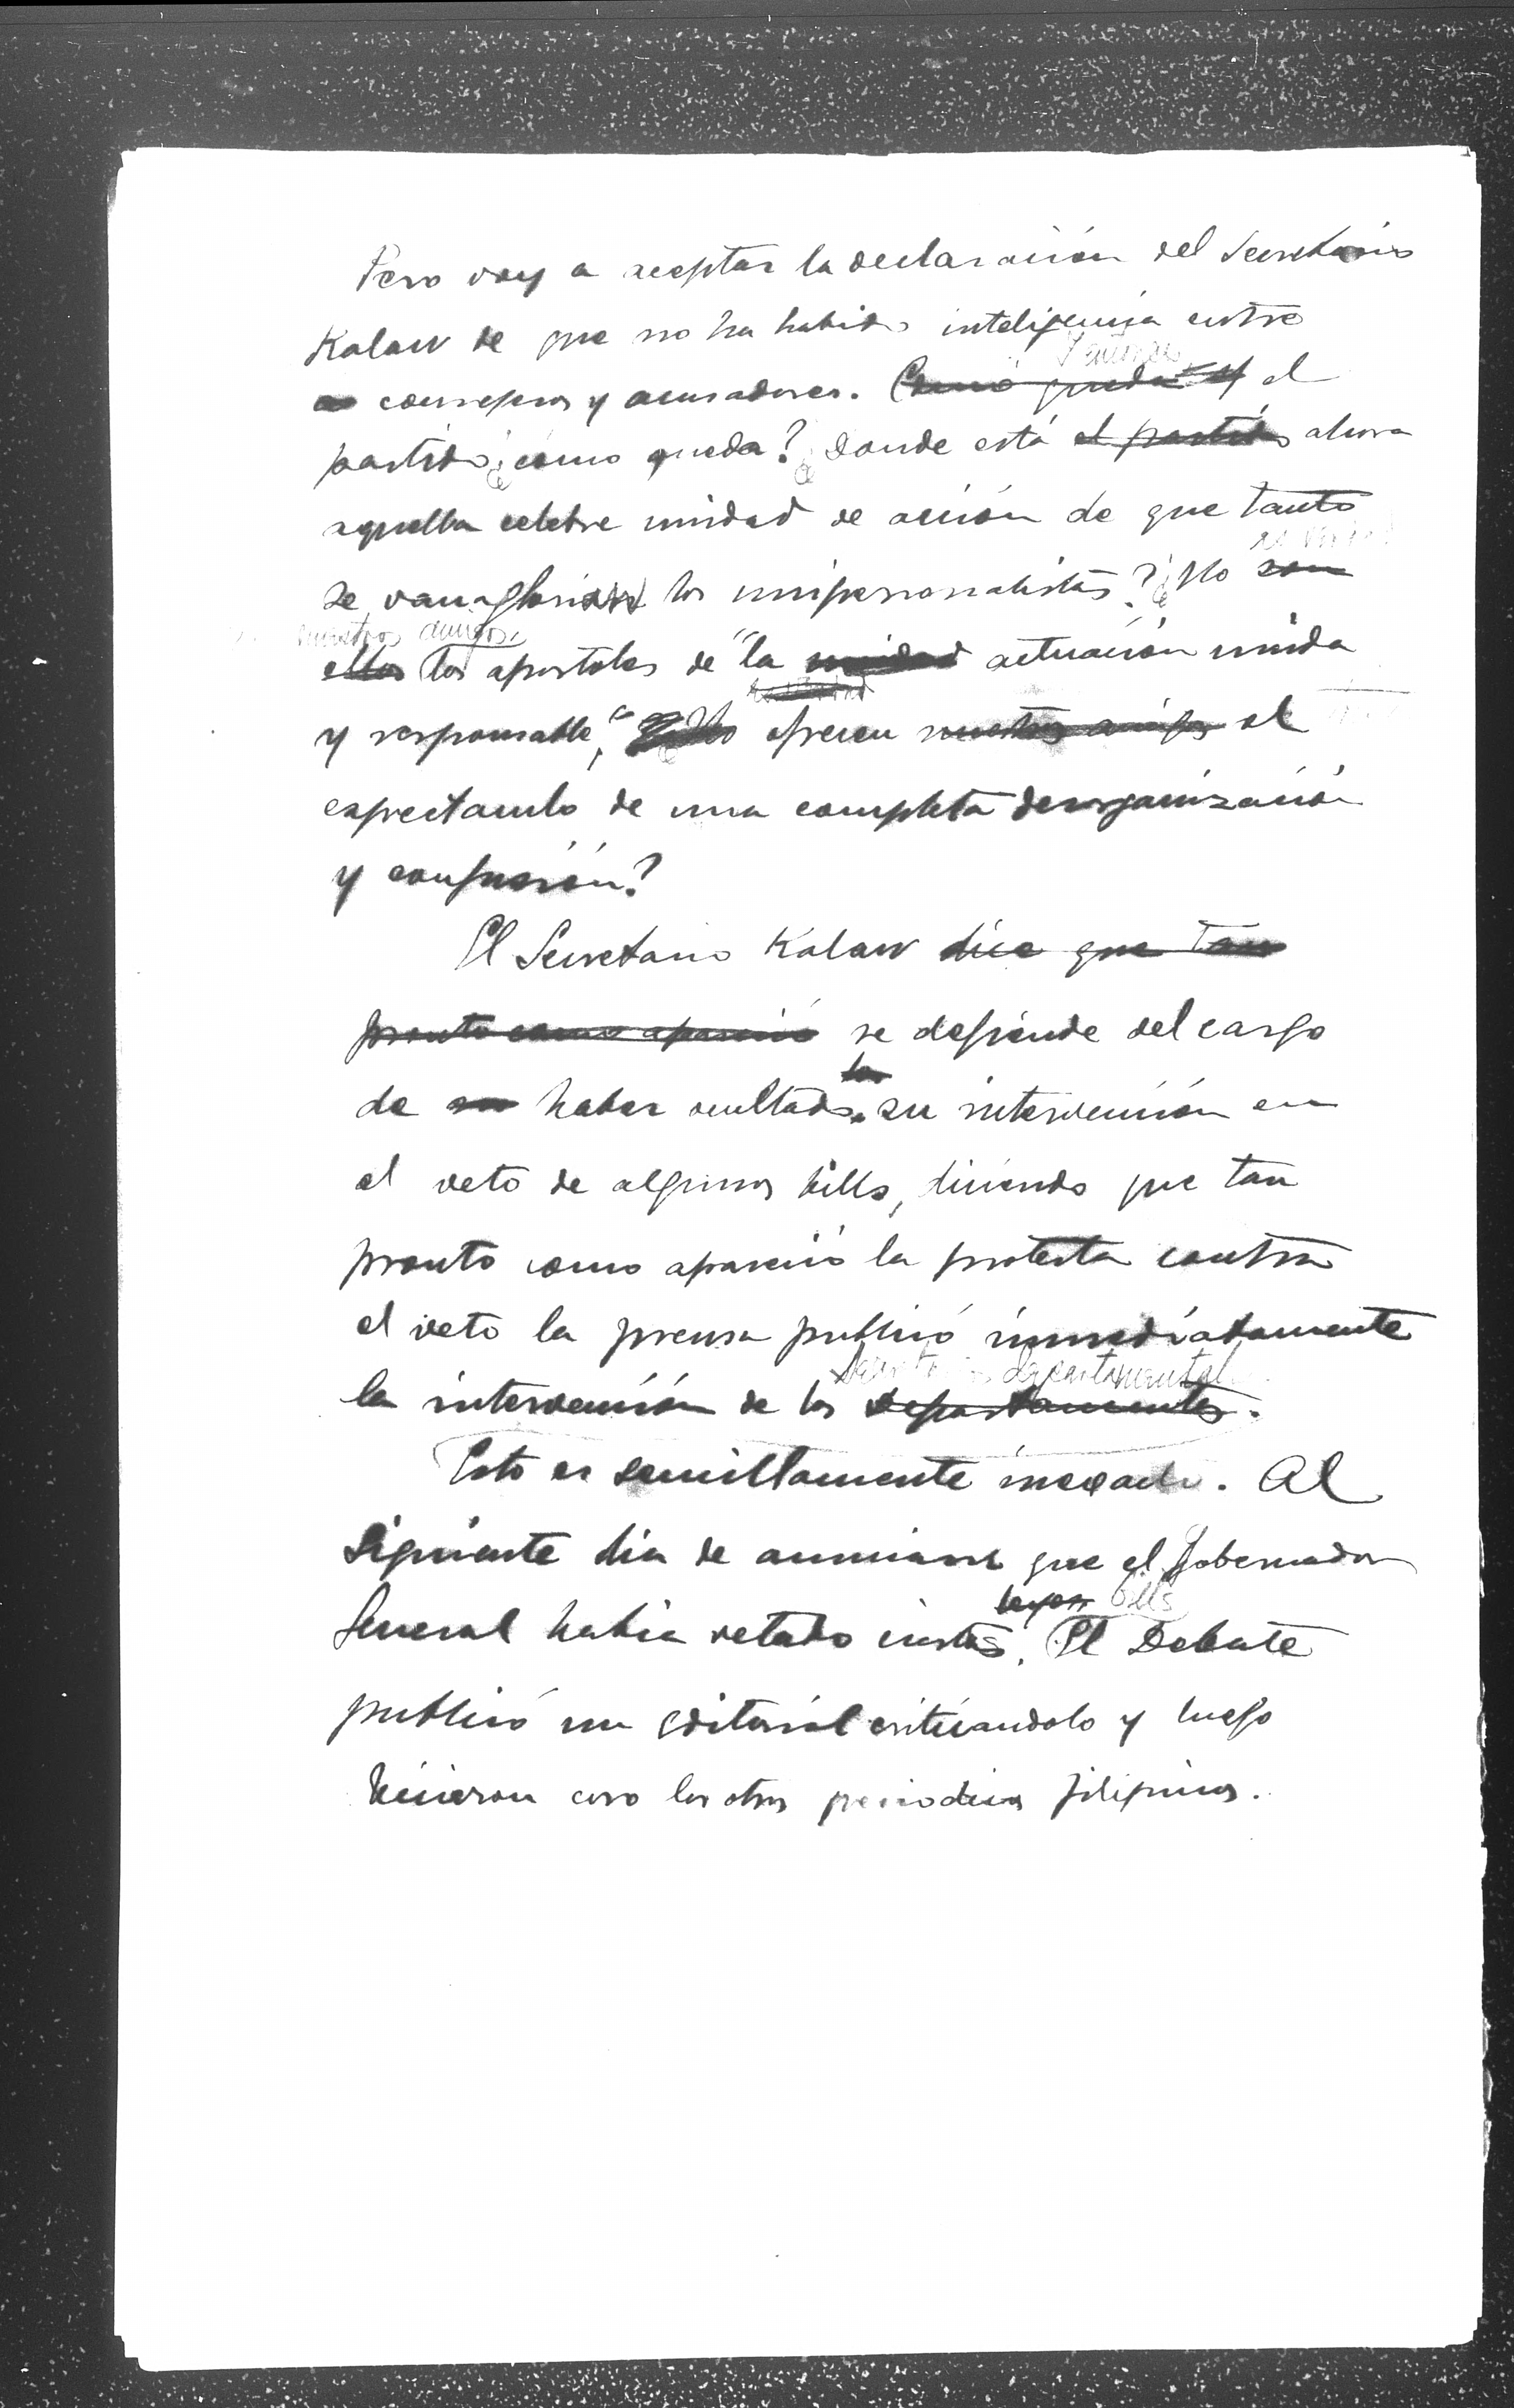 Pero voy a aceptar la declaración del Secretario
Kalaw de que no ha habido inteligencia entre
Y entonces
consejeros y acusadores. Como queda el
partido ¿cómo queda? ¿Donde está el partido ahora
aquella celebre unidad de acción de que tanto
se vanaglorian los unipersonalistas? ¿No son
nuestros amigos
ellos los apostoles de "la unidad actuación unida
y responsable", No ofrecen nuestros amigos el
espectaculo de una completa desorganización
y confusión?
El Secretario Kalaw dice que tan
pronto como apareció se defiende del cargo
los
de su haber ocultado su intervención en
el veto de algunos bills, diciendo que tan
pronto como apareció la protesta contra
el veto la prensa publicó inmediatamente
Secretarios departamentales
la intervención de los departamentos.
Esto es sencillamente inexacto. Al
siguiente dia de anunciarse que el Gobernador
leyes bills
General habia vetado ciertos. El Debate
publicó un editorial criticandolo y luego
hicieron coro los otros periodicos filipinos.